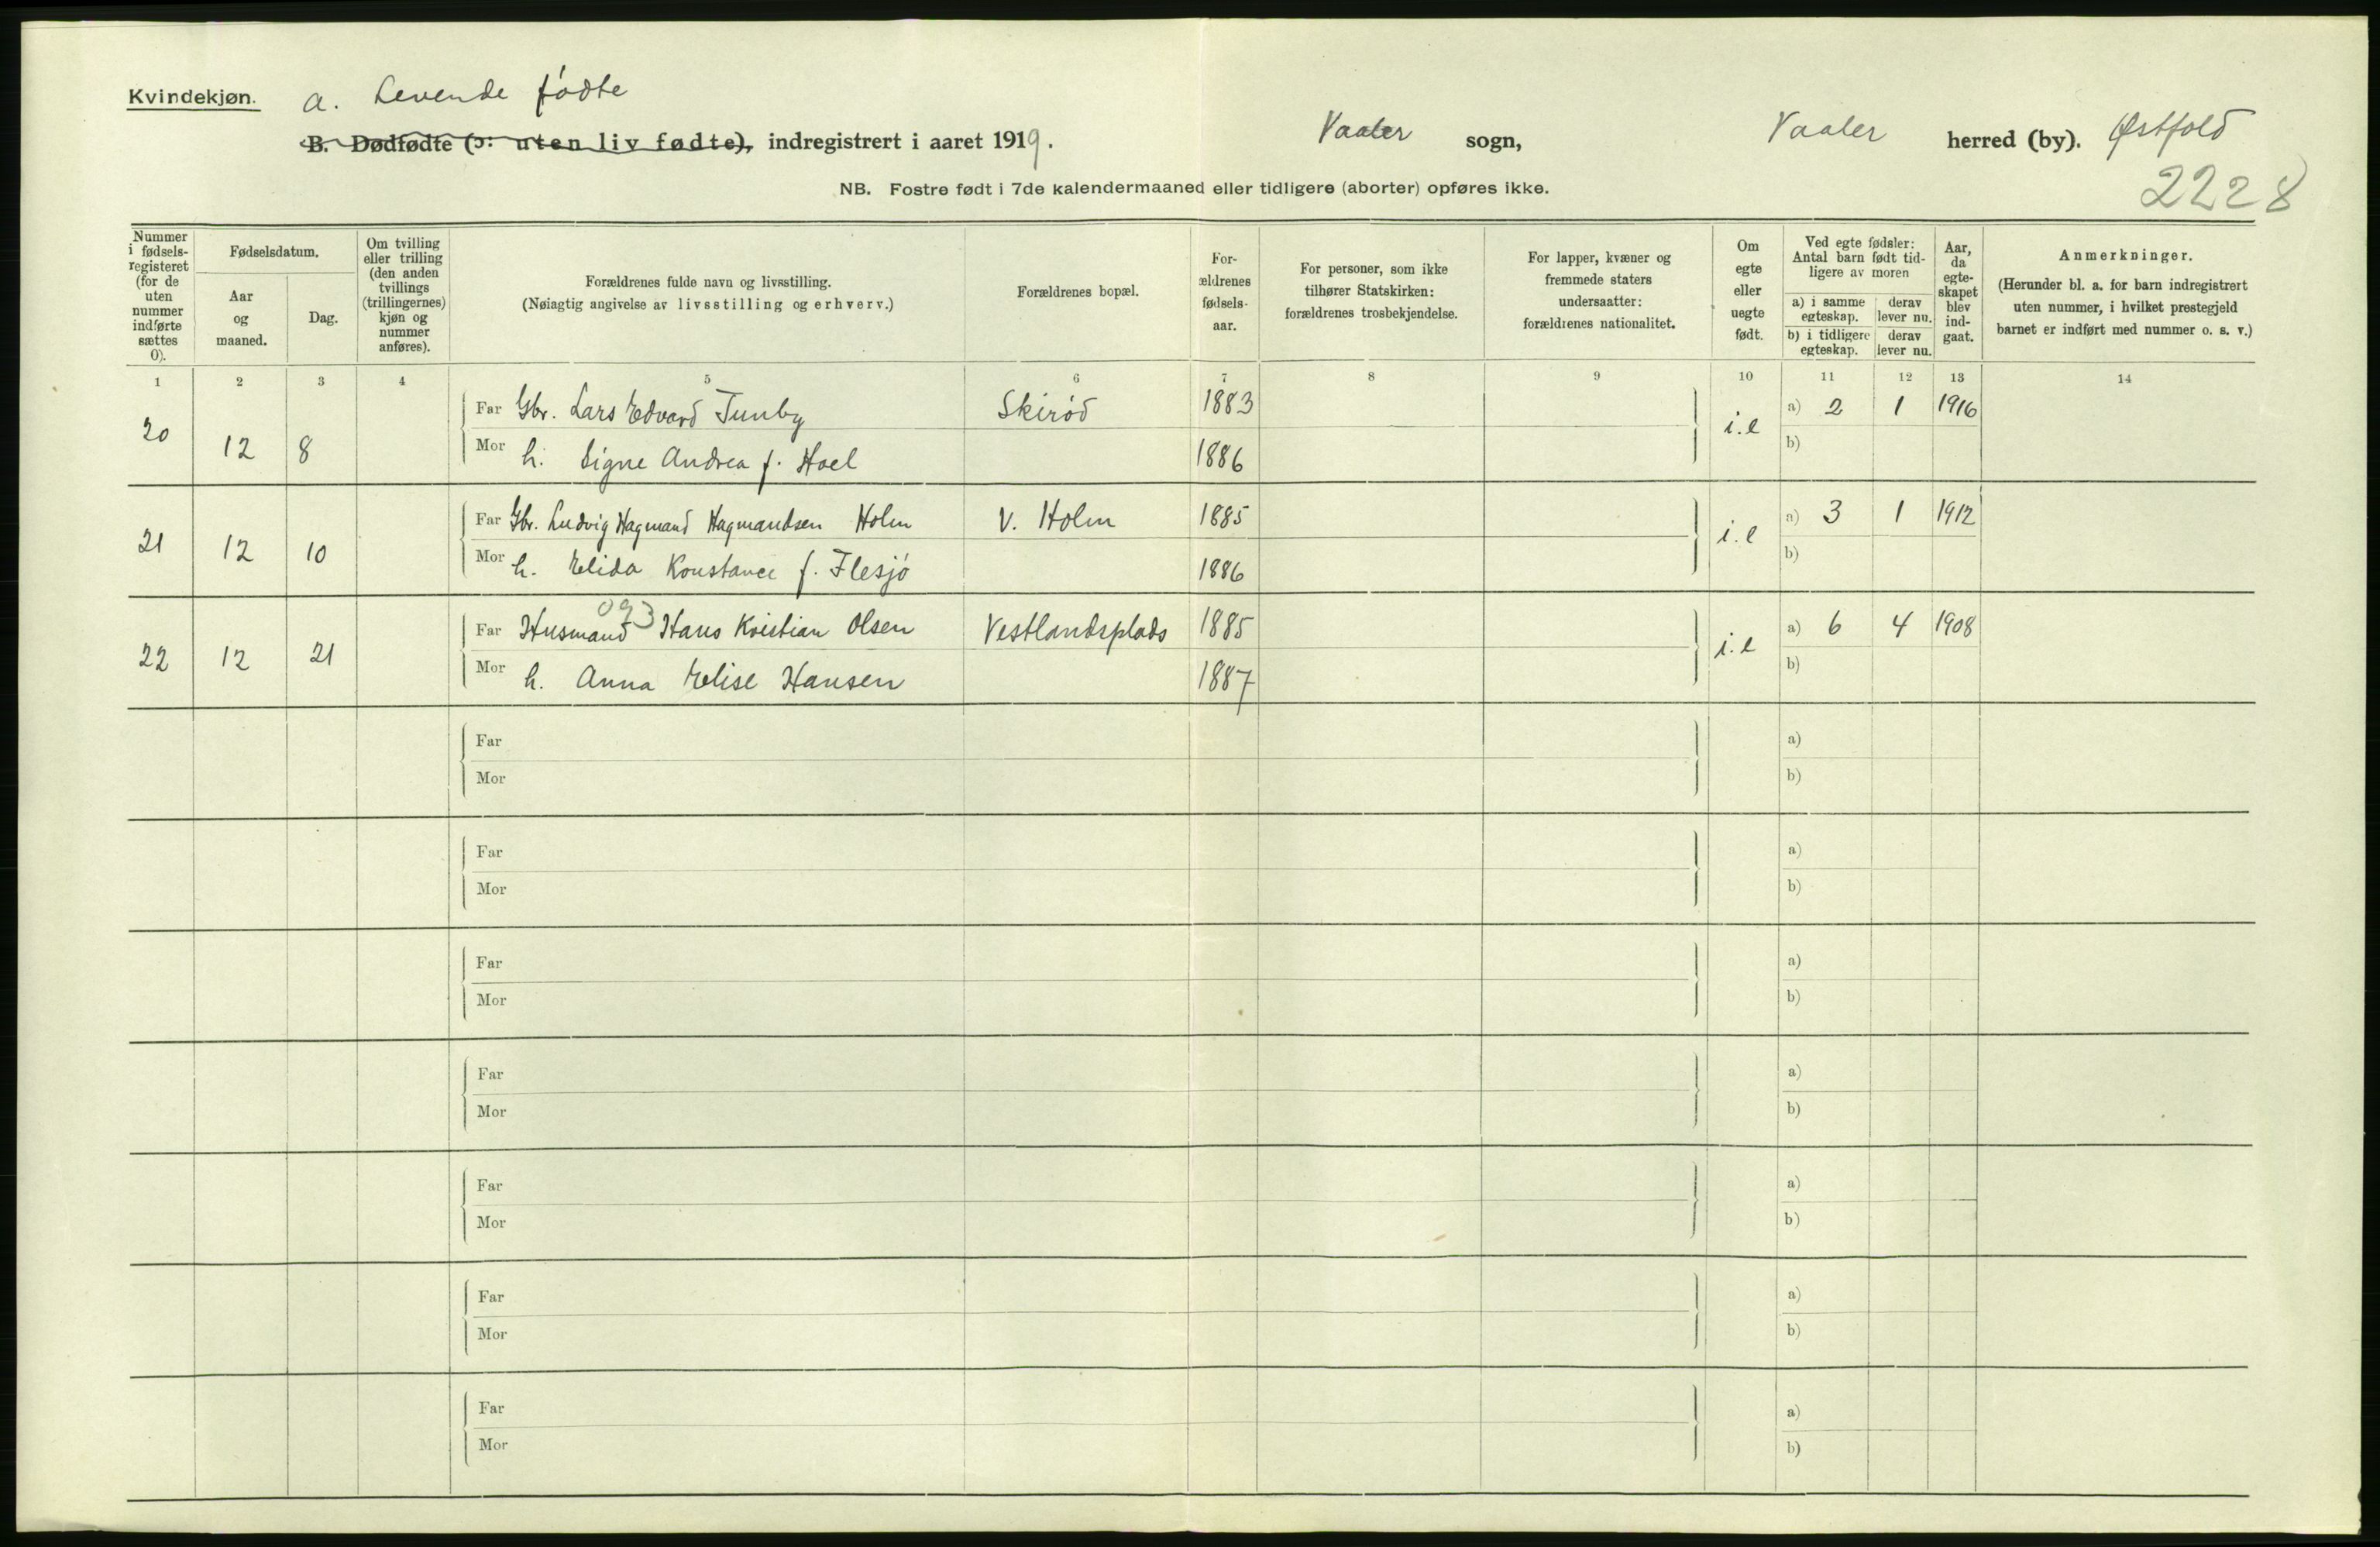 Kvindekjøn. a. Levende fødte
B. Dødfødte (ɔ: uten liv fødte), indregistrert i aaret 1919. Vaaler sogn, Vaaler herred (by). Østfold
2228
NB. Fostre født i 7de kalendermaaned eller tidligere (aborter) opføres ikke.
Nummer i fødsels-registeret (for de uten nummer indførte sættes 0).
Fødselsdatum.
Aar og maaned.
Dag.
Om tvilling eller trilling (den anden tvillings (trillingernes) kjøn og nummer anføres).
Forældrenes fulde navn og livsstilling.
(Nøiagtig angivelse av livsstilling og erhverv.)
Forældrenes bopæl.
For-ældrenes fødsels-aar.
For personer, som ikke tilhører Statskirken: forældrenes trosbekjendelse.
For lapper, kvæner og fremmede staters undersaatter: forældrenes nationalitet.
Om egte eller uegte født.
Ved egte fødsler: Antal barn født tid-ligere av moren
a) i samme egteskap. derav lever nu.
b) i tidligere egteskap. derav lever nu.
Aar, da egte-skapet blev ind-gaat.
Anmerkninger.
(Herunder bl. a. for barn indregistrert uten nummer, i hvilket prestegjeld barnet er indført med nummer o. s. v.)
1 2 3 4 5 6 7 8 9 10 11 12 13 14
20 12 8 Far Gbr. Lars Edvard Tunby Skirød 1883 i.e a) 2 1 1916
Mor h. Signe Andrea f. Hoel 1886 b)
21 12 10 Far Gbr. Ludvig Hagmand Hagmandsen Holm V. Holm 1885 i.e a) 3 1 1912
Mor h. Elida Konstance f. Flesjø 1886 b)
093
22 12 21 Far Husmand Hans Kristian Olsen Vestlandsplads 1885 i.e a) 6 4 1908
Mor h. Anna Elise Hansen 1887 b)
Far a)
Mor b)
Far a)
Mor b)
Far a)
Mor b)
Far a)
Mor b)
Far a)
Mor b)
Far a)
Mor b)
Far a)
Mor b)